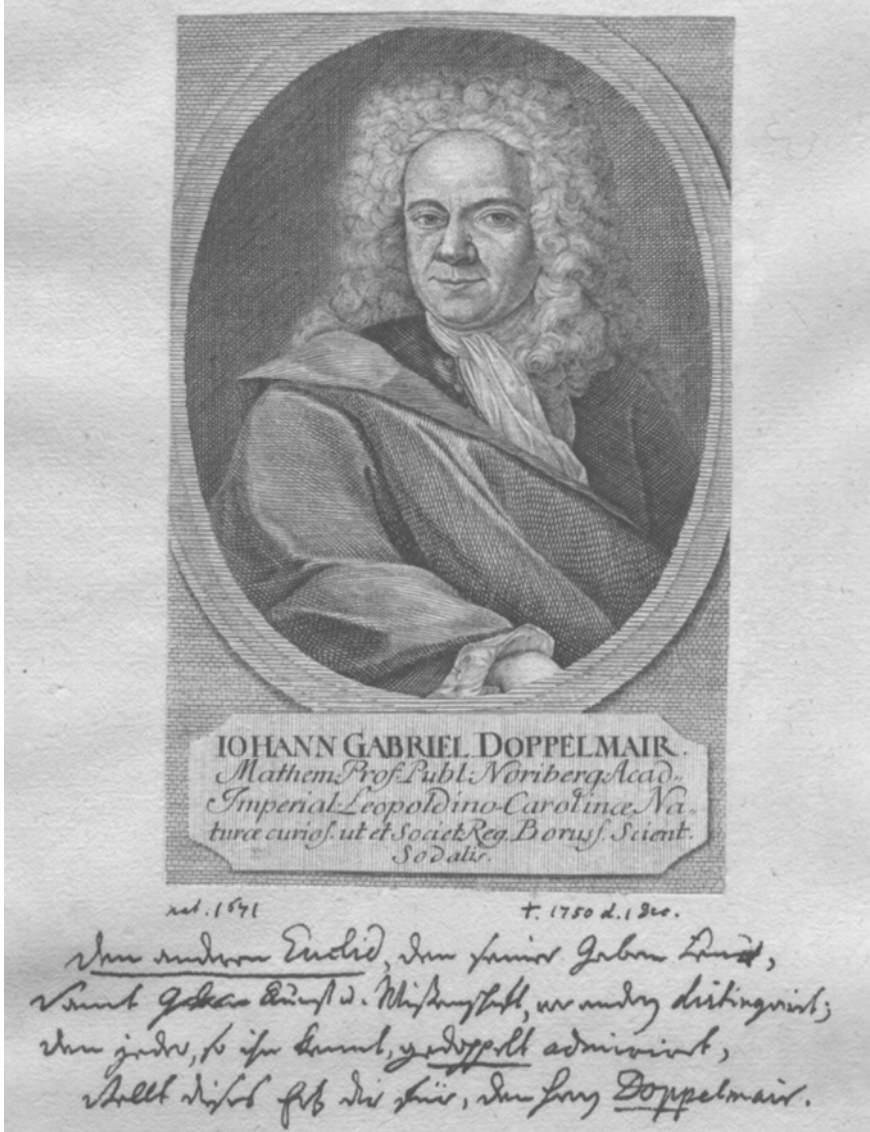 IOHANN GABRIEL DOPPELMAIR.
Mathem. Prof. Publ. Noriberg. Acad„
Imperial. Leopoldino-Carolinæ Na„
turæ curiof. ut et Societ. Reg. Boruſſ. Scient.
Sodalis.
nat. 1671
†. 1750 d. 1 Dec.
Den andern Euclid, den seiner Gaben
Kunst u. Wißenschafft, vor andern distinguirt;
Den jeder, so ihn kennt, gedoppelt admirirt,
Stellt dieses Ertz dir für, den Herrn Doppelmair.